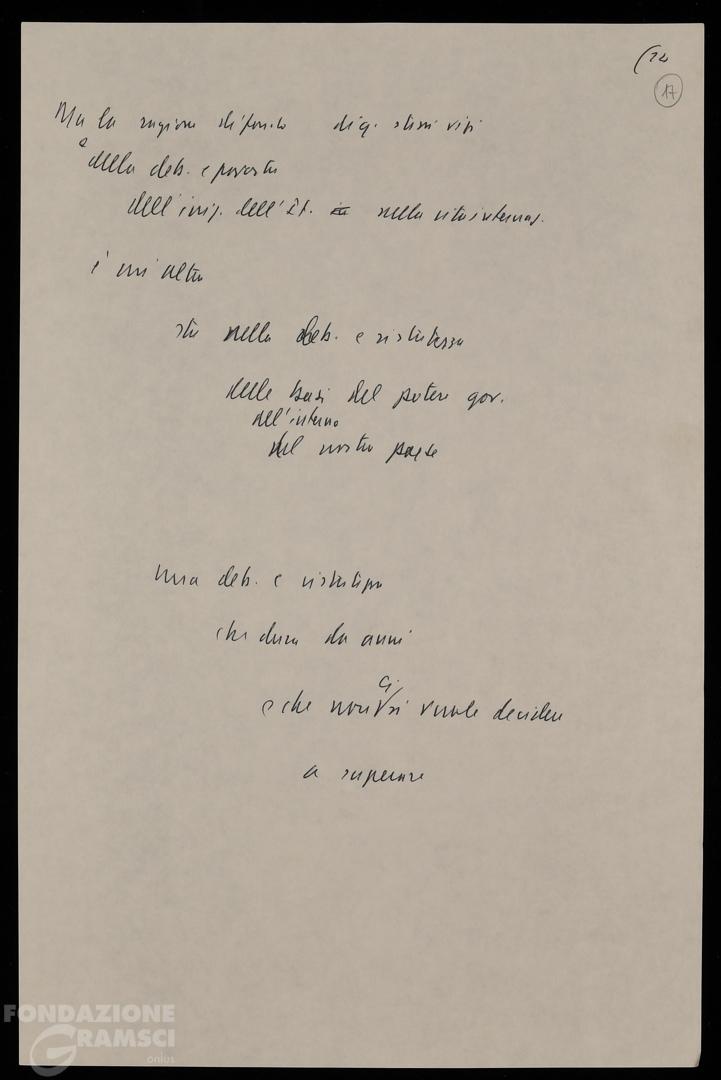 (22
17
Ma la ragione di fondo di q. stessi vizi
e della deb. e povertà
dell'iniz. dell'It. nella vita internaz.
è un'altra
sta nella deb. e ristrettezza
delle basi del potere gov.
dell'interno
del nostro paese
Una deb. e ristrettezza
che dura da anni
e che non ci si vuole decidere
a superare
FONDAZIONE
GRAMSCI
onlus